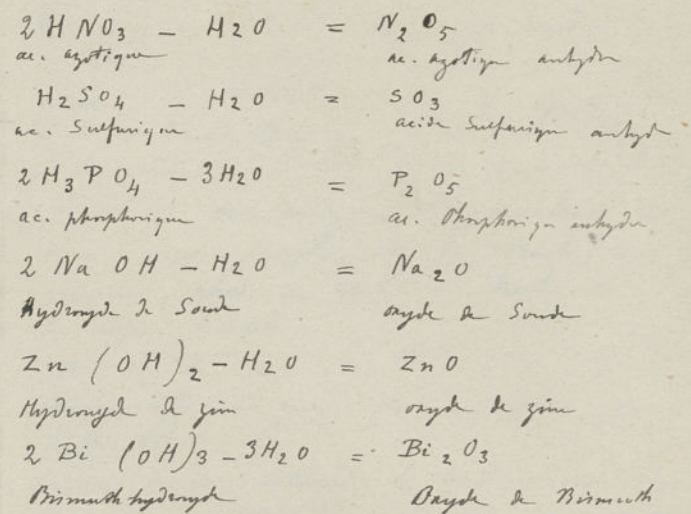 2 HNO3 – H2O = N2O5
ac. azotique ac. azotique anhydre
H2SO4 – H2O = SO3
ac. Sulfurique acide Sulfurique anhyd
2 H3PO4 – 3H2O = P2O5
ac. phosphorique ac. Phosphorique anhydre
2 NaOH – H2O = Na2O
Hydroxyde de Soude oxyde de Soude
Zn (OH)2 – H2O = ZnO
Hydroxyde de zinc oxyde de zinc
2 Bi (OH)3 – 3H2O = Bi2O3
Bismuth hydroxyde Oxyde de Bismuth